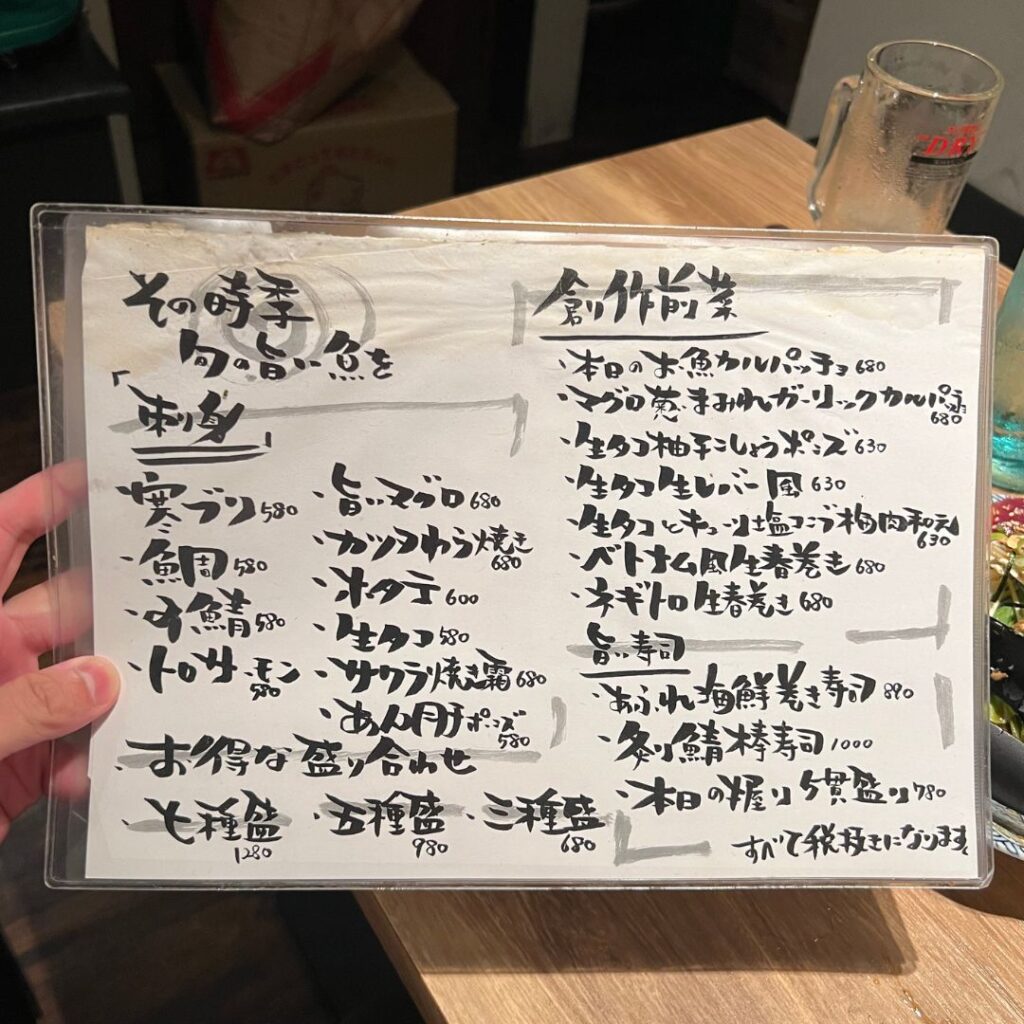 その時季
旬の旨い魚を
「刺身」
寒ブリ 580
・鯛 580
・〆鯖 580
・トロサーモン 580
・旨いマグロ 680
・カツオわら焼き 680
・ホタテ 600
・生タコ 580
・サワラ焼き霜 680
・あん肝ポンズ 580
・お得な盛り合わせ
・七種盛 1280
・五種盛 980
・三種盛 680
創作前菜
・本日のお魚カルパッチョ 680
・マグロ葱まみれガーリックカルパッチョ 680
・生タコ柚子こしょうポンズ 630
・生タコ生レバー風 630
・生タコとキューリ塩コンブ梅肉和え 630
・ベトナム風生春巻き 680
・ネギトロ生春巻き 680
旨い寿司
・あふれ海鮮巻き寿司 890
・炙り鯖棒寿司 1000
・本日の握り5貫盛り 780
すべて税抜きになります。